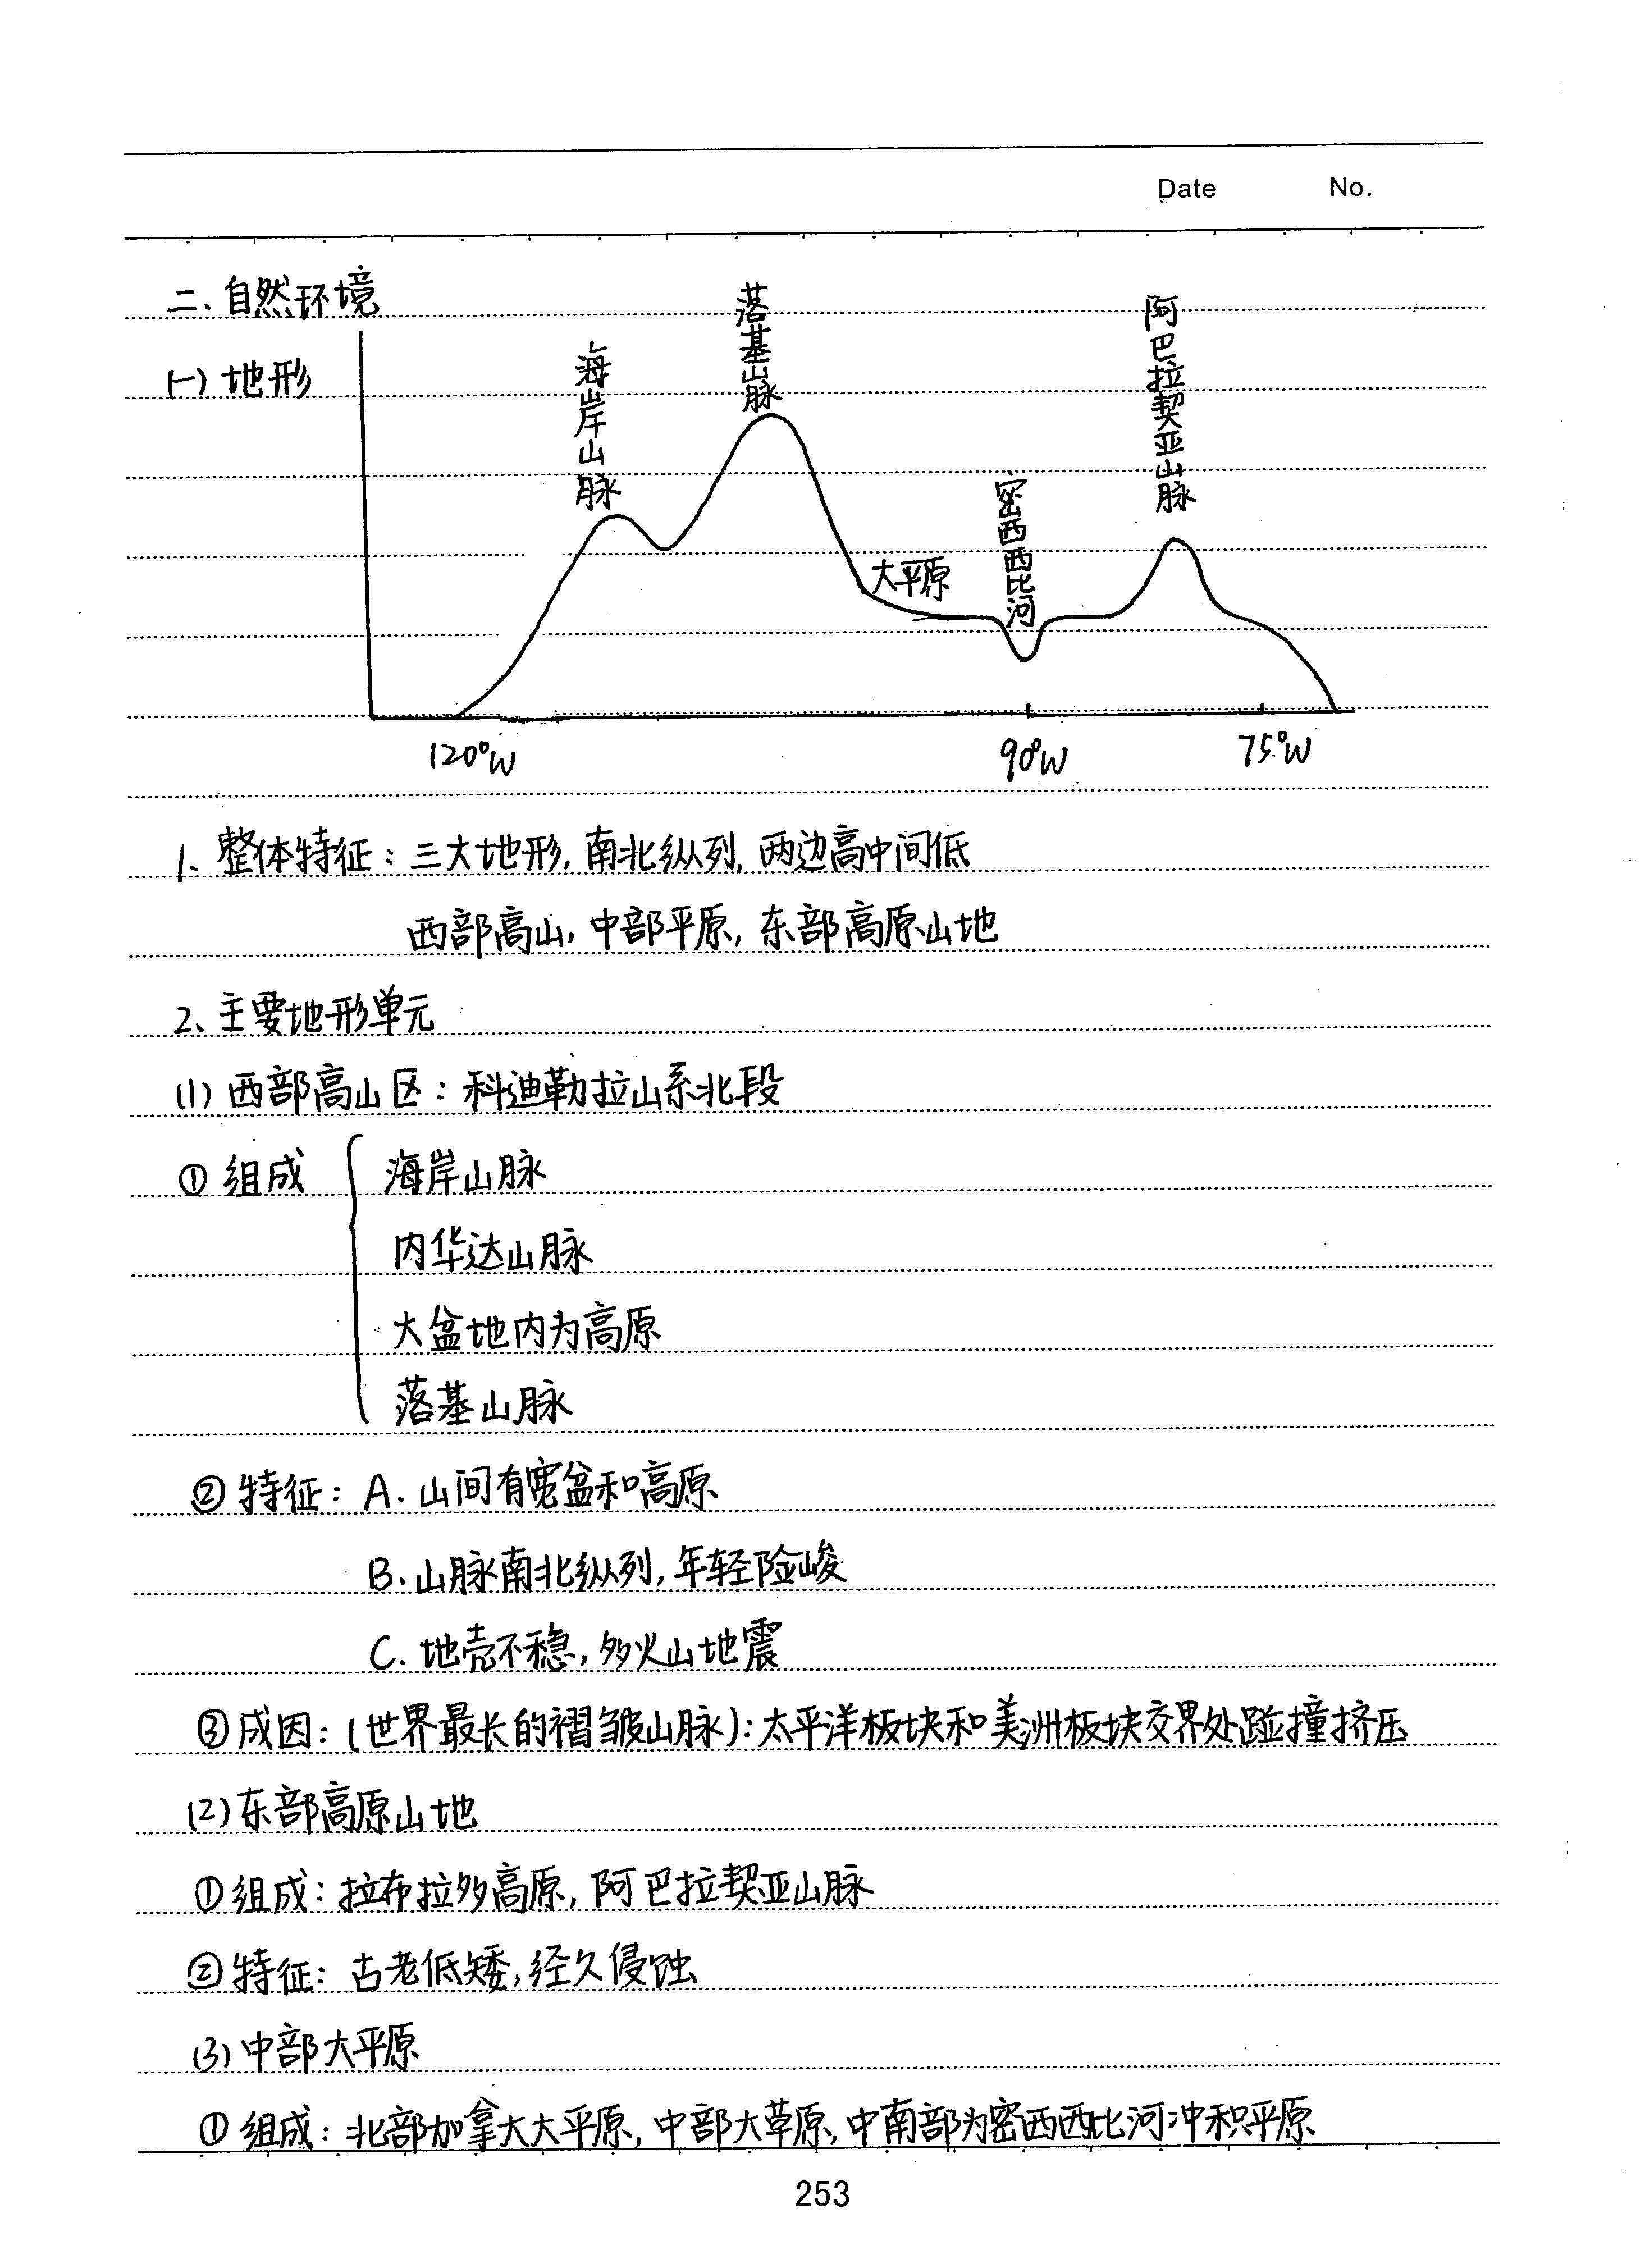 Date No.
二、自然环境
(一)地形
海岸山脉
落基山脉
大平原
密西西比河
阿巴拉契亚山脉
120°W 90°W 75°W
1、整体特征：三大地形，南北纵列，两边高中间低
西部高山，中部平原，东部高原山地
2、主要地形单元
(1)西部高山区：科迪勒拉山系北段
①组成 海岸山脉
内华达山脉
大盆地内为高原
落基山脉
②特征：A.山间有宽盆和高原
B.山脉南北纵列，年轻险峻
C.地壳不稳，多火山地震
③成因：(世界最长的褶皱山脉)：太平洋板块和美洲板块交界处碰撞挤压
(2)东部高原山地
①组成：拉布拉多高原，阿巴拉契亚山脉
②特征：古老低矮，经久侵蚀
(3)中部大平原
①组成：北部加拿大大平原，中部大草原，中南部为密西西比河冲积平原
253